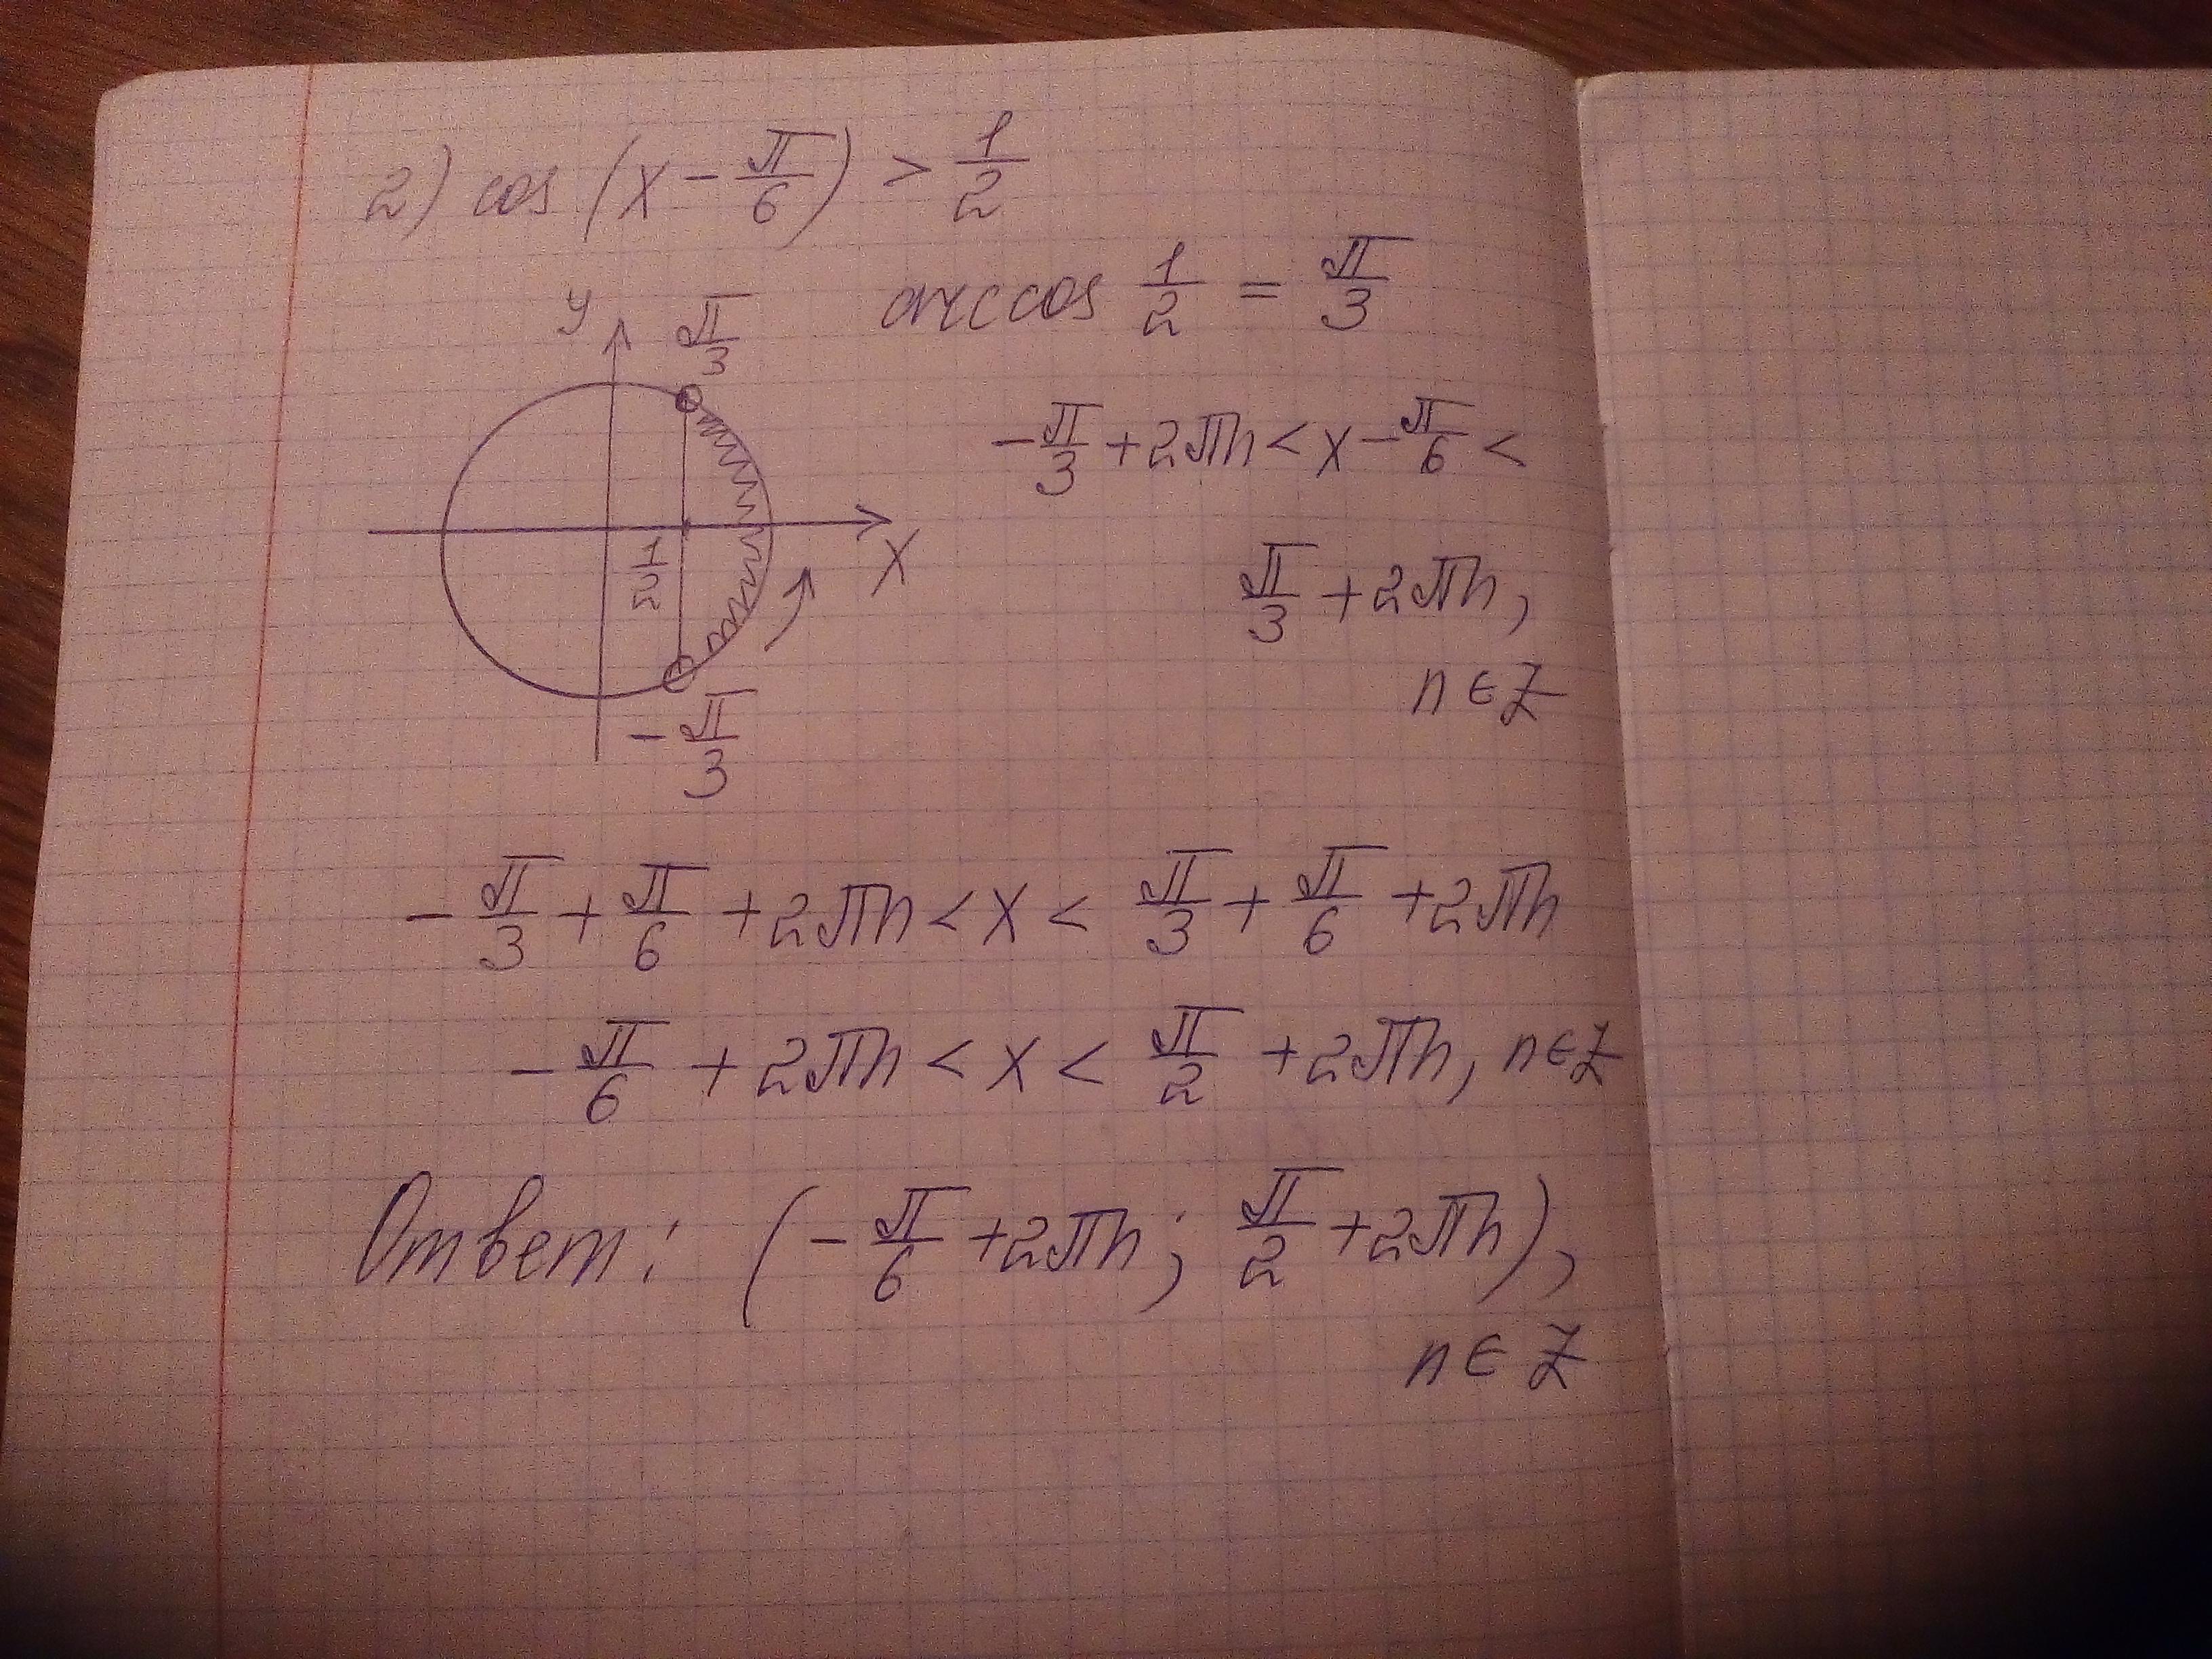 2) cos (x - π/6) > 1/2
arccos 1/2 = π/3
y
π/3
1/2
x
-π/3
-π/3 + 2πn < x - π/6 <
π/3 + 2πn,
n ∈ Z
-π/3 + π/6 + 2πn < x < π/3 + π/6 + 2πn
-π/6 + 2πn < x < π/2 + 2πn, n ∈ Z
Ответ: (-π/6 + 2πn; π/2 + 2πn),
n ∈ Z